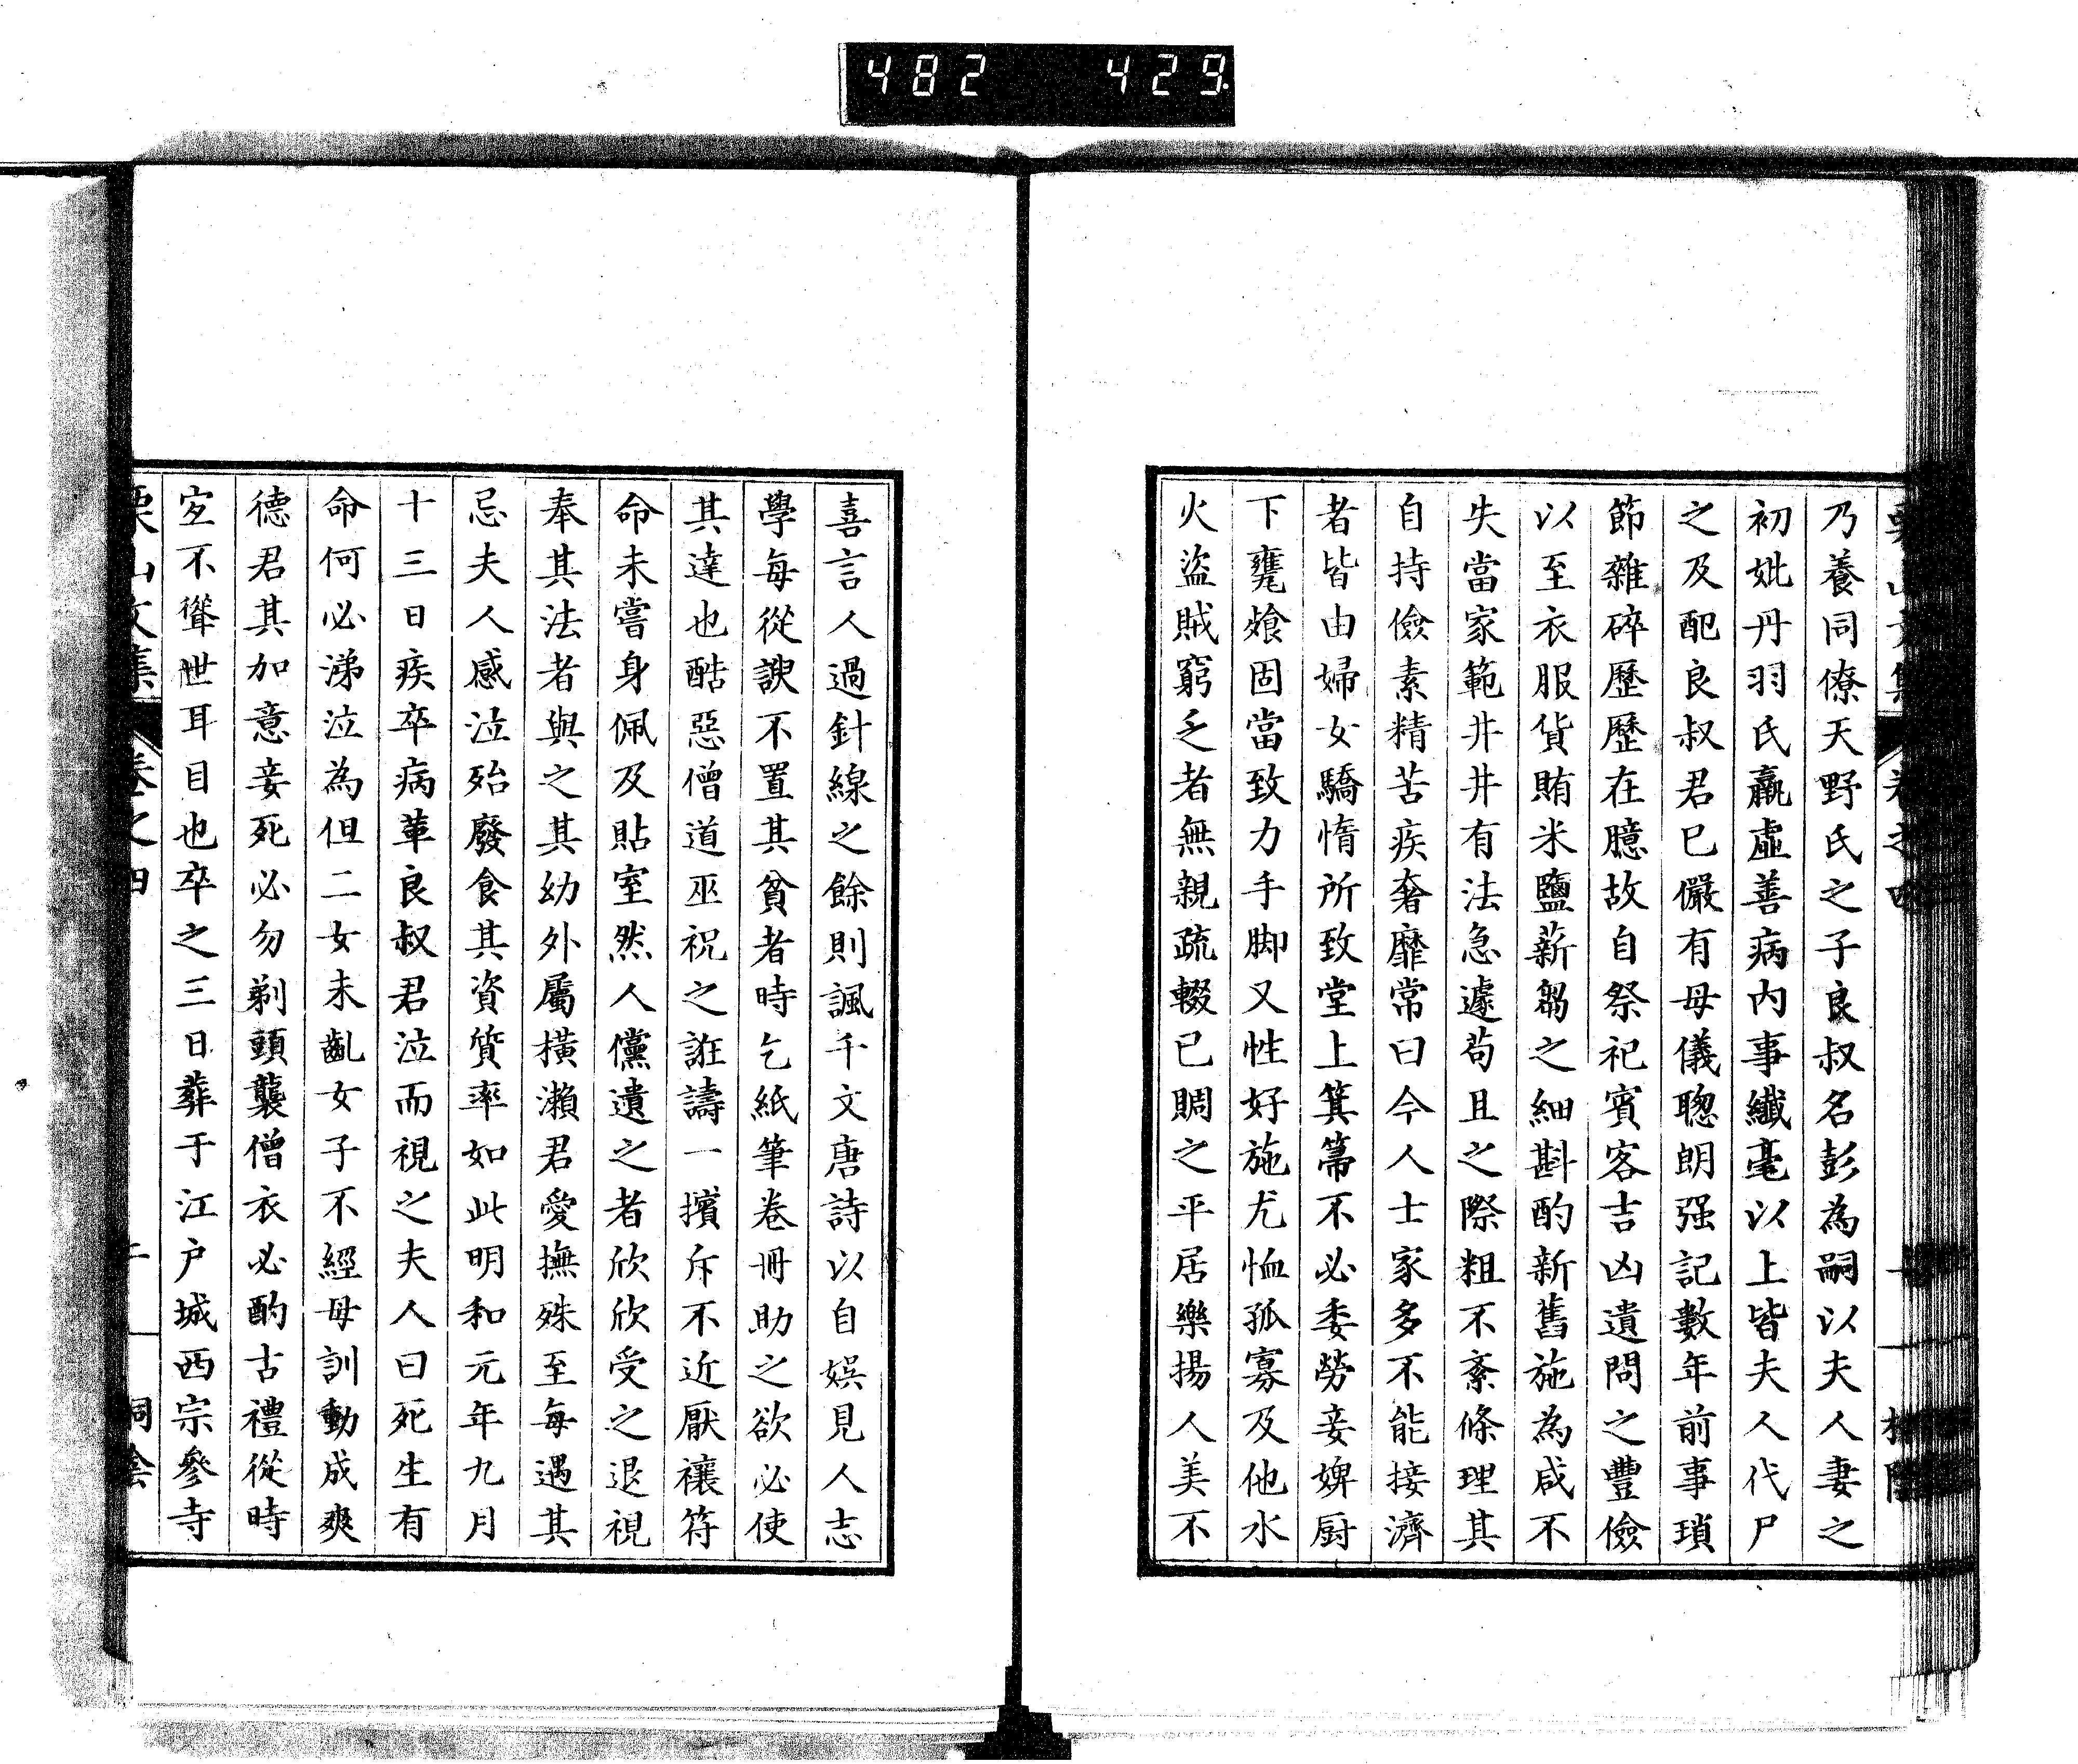 482 429
乃養同僚天野氏之子良叔名彭為嗣以夫人妻之
初妣丹羽氏羸虛善病內事纖毫以上皆夫人代尸
之及配良叔君已儼有母儀聰朗强記數年前事瑣
節雜碎歷歷在臆故自祭祀賓客吉凶遺問之豐儉
以至衣服貨賄米鹽薪芻之細斟酌新舊施為咸不
失當家範井井有法急遽苟且之際粗不紊條理其
自持儉素精苦疾奢靡常曰今人士家多不能接濟
者皆由婦女驕惰所致堂上箕箒不必委勞妾婢厨
下甕飧固當致力手脚又性好施尤恤孤寡及他水
火盜賊窮乏者無親疏輟已賙之平居樂揚人美不
喜言人過針線之餘則諷千文唐詩以自娛見人志
學每從諛不置其貧者時乞紙筆卷冊助之欲必使
其達也酷惡僧道巫祝之誑譸一擯斥不近厭禳符
命未嘗身佩及貼室然人儻遺之者欣欣受之退視
奉其法者與之其幼外屬橫瀨君愛撫殊至每遇其
忌夫人感泣殆廢食其資質率如此明和元年九月
十三日疾卒病革良叔君泣而視之夫人曰死生有
命何必涕泣為但二女未齔女子不經母訓動成爽
德君其加意妾死必勿剃頭襲僧衣必酌古禮從時
宐不聳世耳目也卒之三日葬于江户城西宗參寺
栗山文集 卷之四